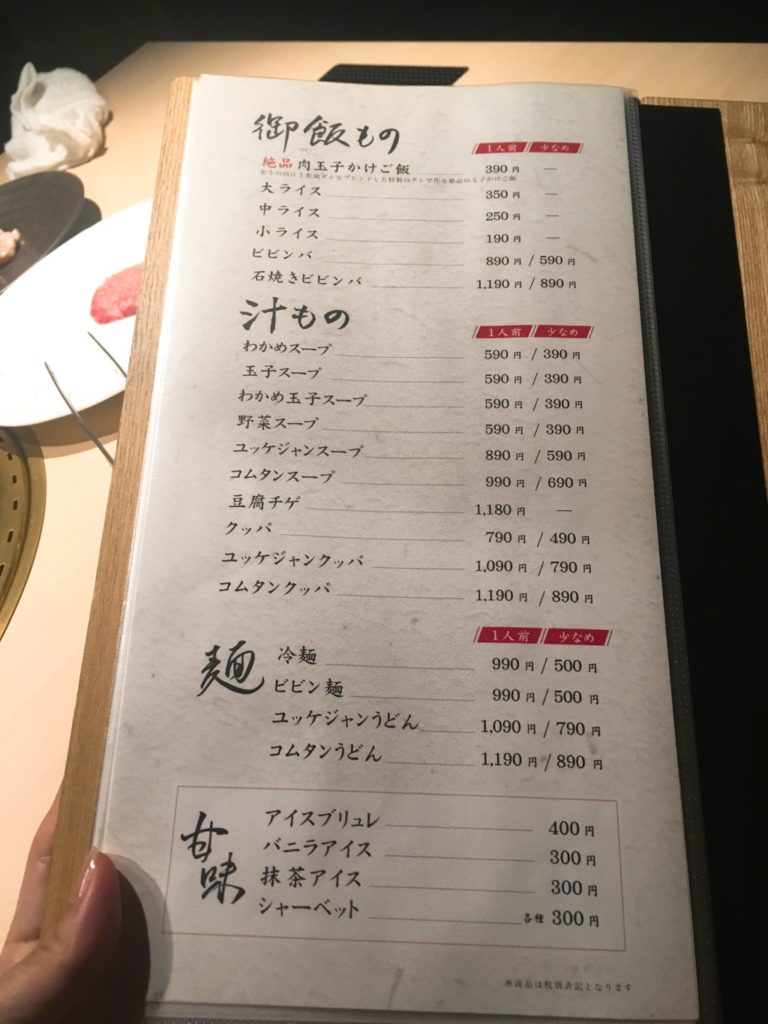 御飯もの 1人前 少なめ
絶品 肉玉子かけご飯 390円 —
大ライス 350円 —
中ライス 250円 —
小ライス 190円 —
ビビンバ 890円 / 590円
石焼きビビンバ 1,190円 / 890円
汁もの 1人前 少なめ
わかめスープ 590円 / 390円
玉子スープ 590円 / 390円
わかめ玉子スープ 590円 / 390円
野菜スープ 590円 / 390円
ユッケジャンスープ 890円 / 590円
コムタンスープ 990円 / 690円
豆腐チゲ 1,180円 —
クッパ 790円 / 490円
ユッケジャンクッパ 1,090円 / 790円
コムタンクッパ 1,190円 / 890円
麺 1人前 少なめ
冷麺 990円 / 500円
ビビン麺 990円 / 500円
ユッケジャンうどん 1,090円 / 790円
コムタンうどん 1,190円 / 890円
甘味
アイスブリュレ 400円
バニラアイス 300円
抹茶アイス 300円
シャーベット 各種 300円
※商品は税別表記となります